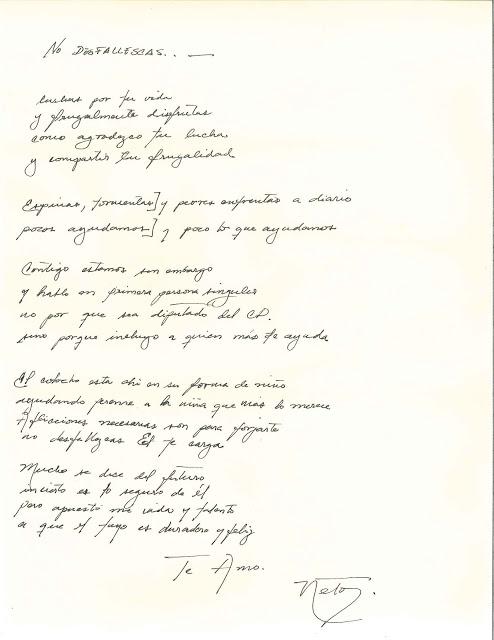 No DESFALLESCAS...
luchas por tu vida
y frugalmente disfrutas
como agradezco tu lucha
y compartir tu frugalidad
Espinas, tormentas] y peores enfrentas a diario
pocos ayudamos] y poco lo que ayudamos
Contigo estamos sin embargo
y hablo en primera persona singular
no por que sea diputado del CD.
sino porque incluyo a quien más te ayuda
El colocho esta ahi en su forma de niño
ayudando perenne a la niña que más lo merece
Aflicciones necesarias son para forjarte
no desfallezcas El te carga
Mucho se dice del futuro
incierto es lo seguro de él
pero apuesto mi vida y talento
a que el tuyo es duradero y feliz
Te Amo.
Neto.